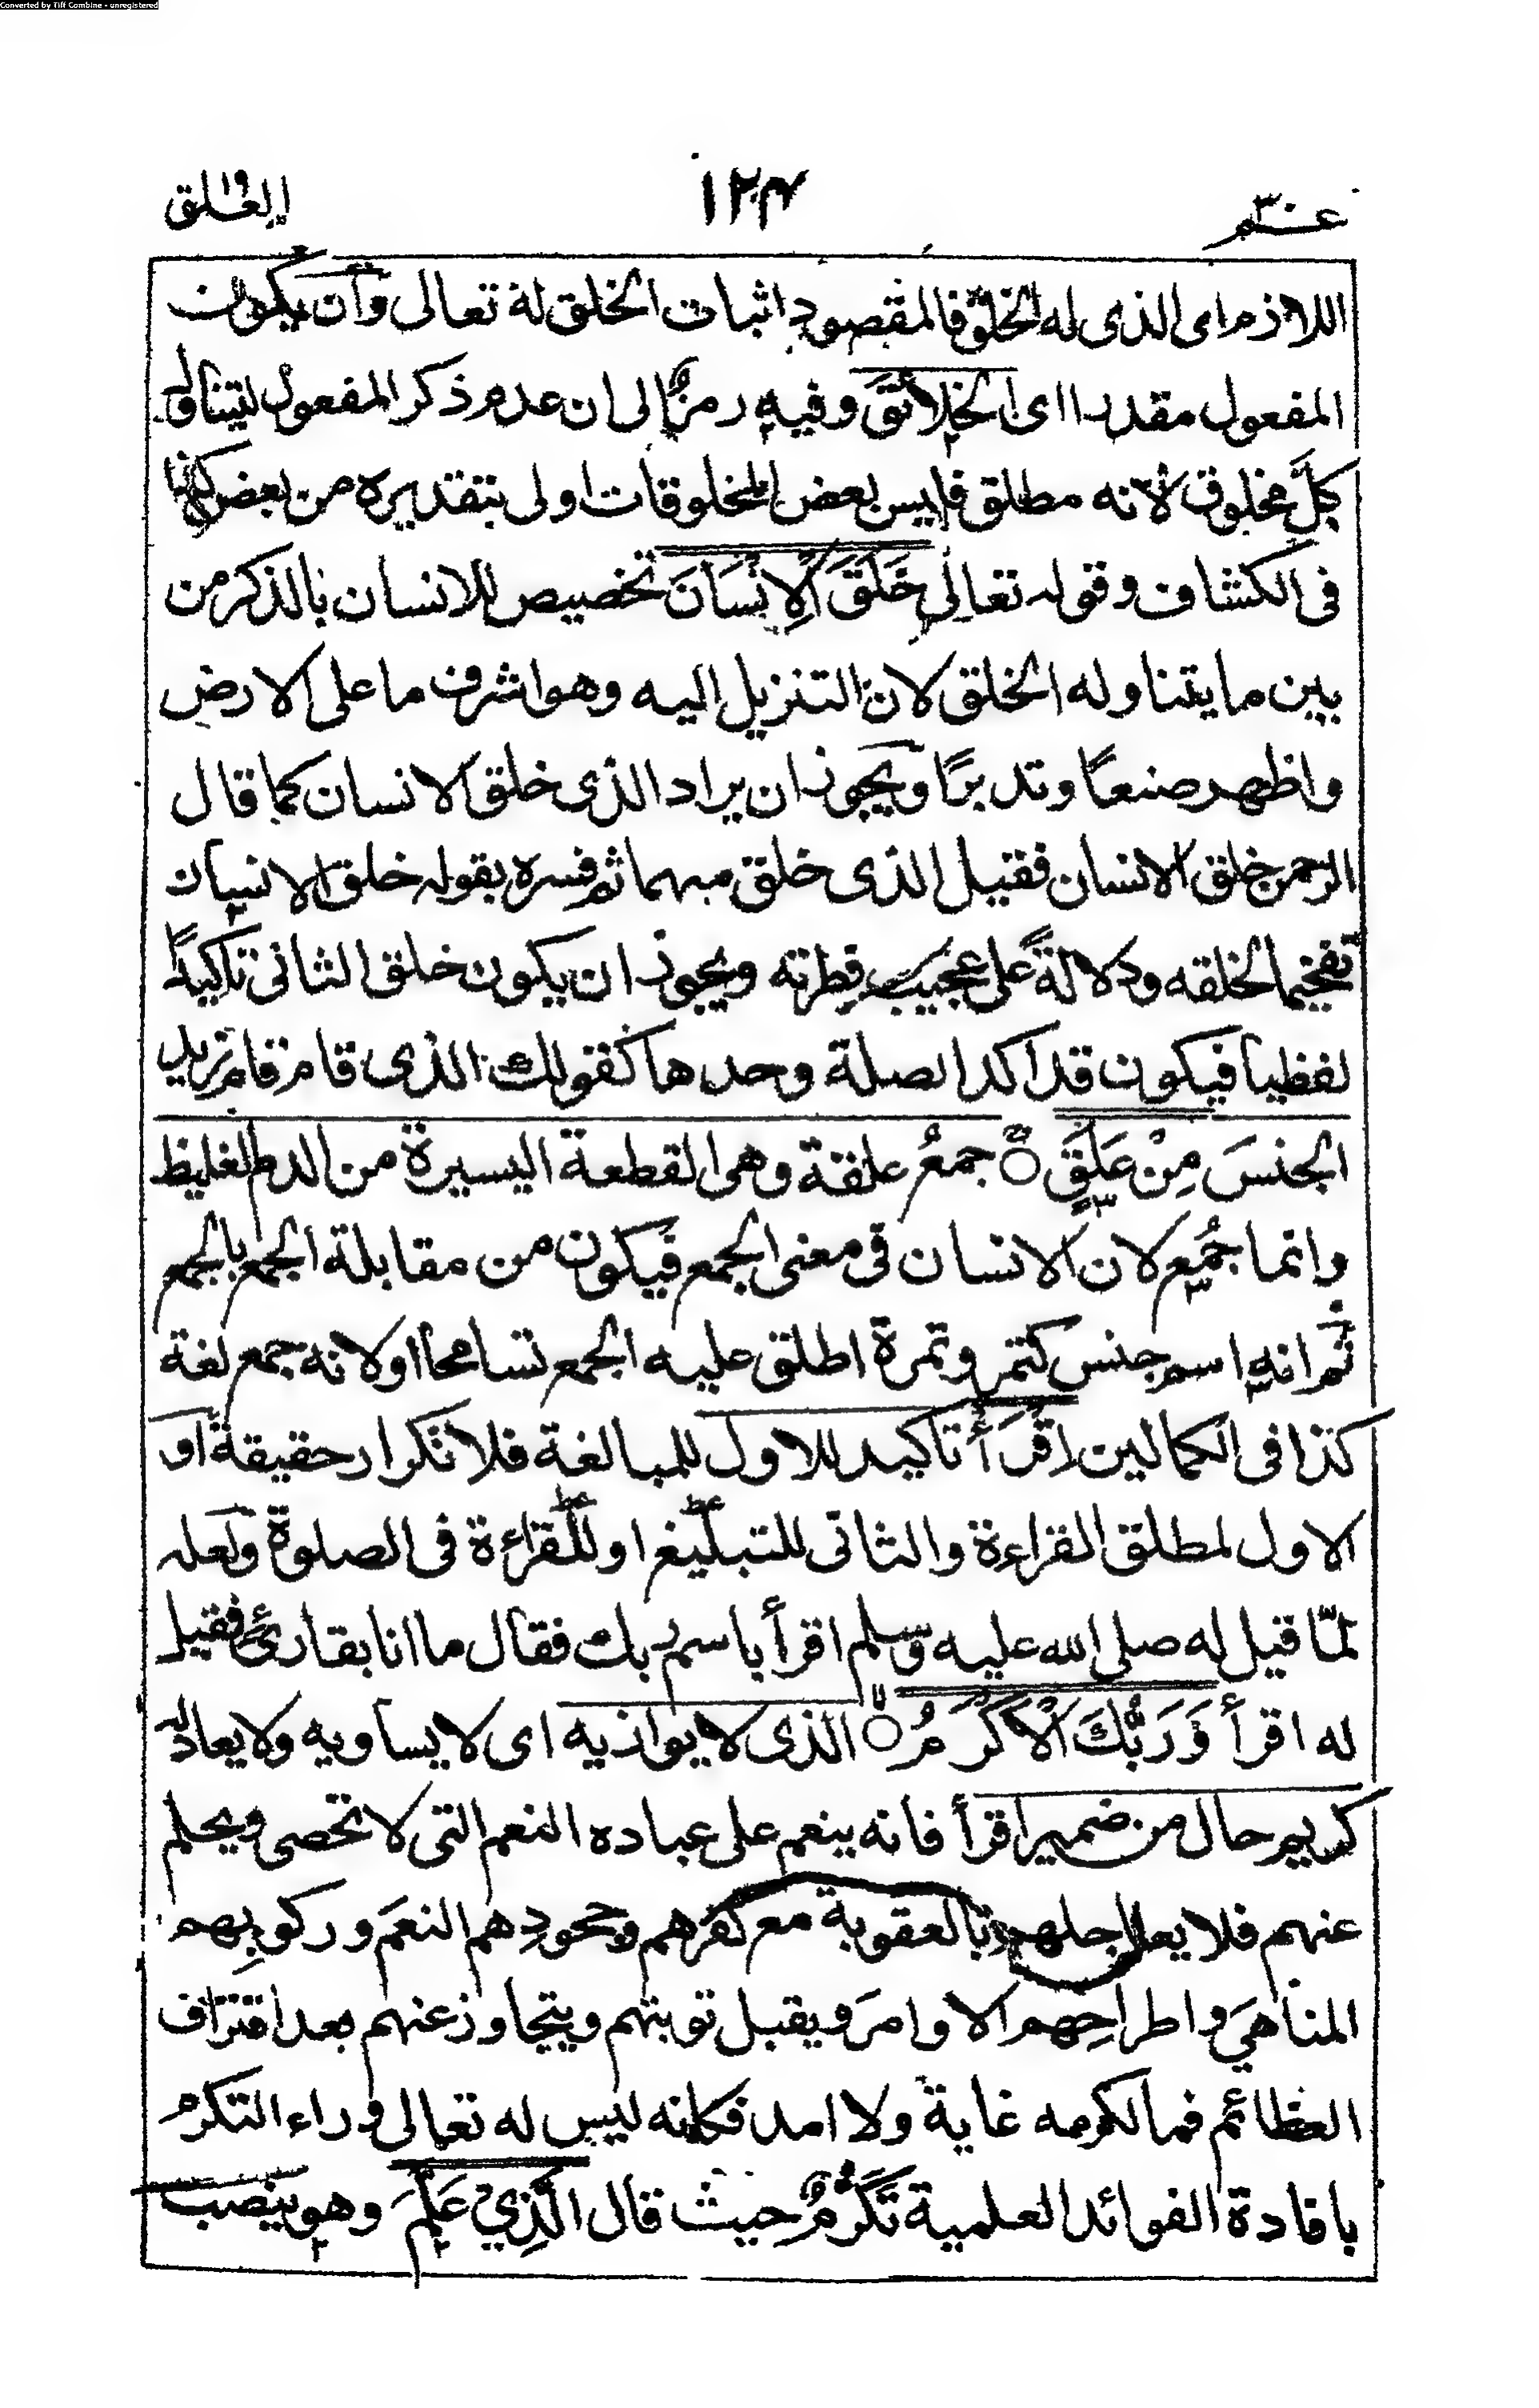 Converted by Tiff Combine - unregistered
عم ٣٠ ١٢٤ العلق
اللازم اى الذى له الخلق فالمقصود اثبات الخلق له تعالى وان يكون
المفعول مقدرا اى الخلائق وفيه رمز الى ان عدم ذكر المفعول ليتناول
كل مخلوق لانه مطلق فليس بعض المخلوقات اولى بتقديره من بعض كذا
فى الكشاف وقوله تعالى خَلَقَ الْاِنْسَانَ تخصيص للانسان بالذكر من
بين ما يتناوله الخلق لان التنزيل اليه وهو اشرف ما على الارض
واظهر صنعًا وتدبرًا ويجوز ان يراد الذى خلق الانسان كما قال
الرحمن خلق الانسان فقيل الذى خلق مبهما ثم فسره بقوله خلق الانسان
تفخيما لخلقه ودلالةً على عجيب فطرته ويجوز ان يكون خلق الثانى تاكيدًا
لفظيا فيكون قد اكد الصلة وحدها كقولك الذى قام قام زيد
الجنسَ مِنْ عَلَقٍ جمعُ علقة وهى القطعة اليسيرة من الدم الغليظ
وانما جُمِع لان الانسان فى معنى الجمع فيكون من مقابلة الجمع بالجمع
ثم انه اسم جنس كتمر وتمرة اطلق عليه الجمع تسامحا او لانه جمع لغة
كذا فى الكمالين اِقْرَأْ تاكيد للاول للمبالغة فلا تكرار حقيقة او
الاول لمطلق القراءة والثانى للتبليغ او للقراءة فى الصلوة ولعله
لمّا قيل له صلى الله عليه وسلم اقرأ باسم ربك فقال ما انا بقارئ فقيل
له اقرأ وَرَبُّكَ الْاَكْرَمُ الذى لا يوازيه اى لا يساويه ولا يعادله
كريم حال من ضمير اقرأ فانه ينعم على عباده النعم التى لا تحصى ويحلم
عنهم فلا يعاجلهم بالعقوبة مع كفرهم وجحودِهم النعمَ وركوبِهم
المناهيَ واطراحِهم الاوامرَ ويقبل توبتهم ويتجاوز عنهم بعد اقتراف
العظائم فما لكرمه غاية ولا امد فكانه ليس له تعالى وراء التكرم
بافادة الفوائد العلمية تَكَرُّمٌ حيث قال الَّذِيْ عَلَّمَ وهو ينصب